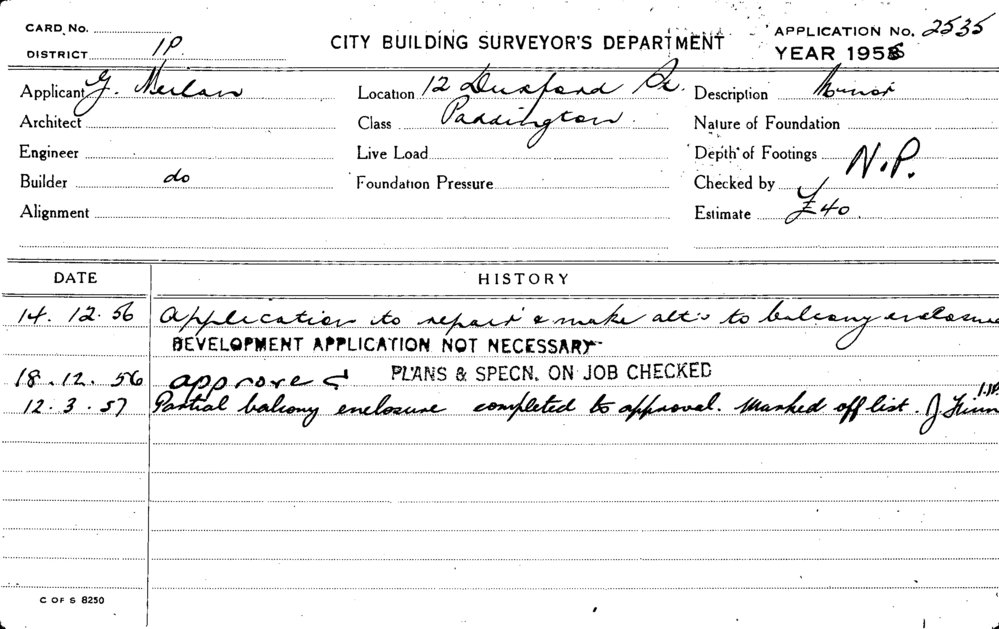 CARD NO.
DISTRICT 1P.
CITY BUILDING SURVEYOR'S DEPARTMENT
APPLICATION NO. 2535
YEAR 1956
Applicant G.
Location 12 St.
Description Minor
Architect
Class Paddington
Nature of Foundation
Engineer
Live Load
Depth of Footings N.P.
Builder do
Foundation Pressure
Checked by
Alignment
Estimate £40
DATE HISTORY
14. 12. 56 Application to repair & make altns to balcony enclosure
DEVELOPMENT APPLICATION NOT NECESSARY
18. 12. 56 approved PLANS & SPECN. ON JOB CHECKED
12. 3. 57 Partial balcony enclosure completed to approval. Marked off list. J
C OF S 8250